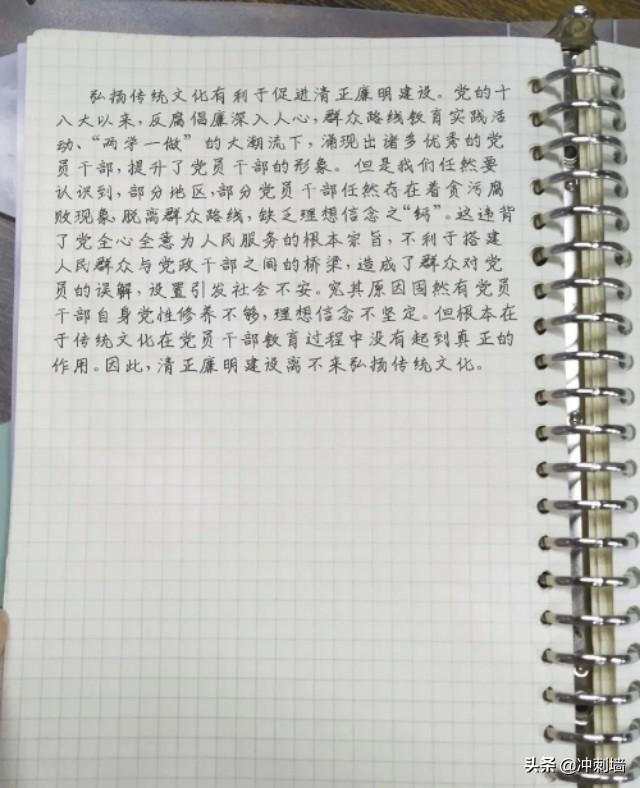 弘扬传统文化有利于促进清正廉明建设。党的十
八大以来，反腐倡廉深入人心，群众路线教育实践活
动、“两学一做”的大潮流下，涌现出诸多优秀的党
员干部，提升了党员干部的形象。但是我们任然要
认识到，部分地区，部分党员干部任然存在着贪污腐
败现象，脱离群众路线，缺乏理想信念之“钙”。这违背
了党全心全意为人民服务的根本宗旨，不利于搭建
人民群众与党政干部之间的桥梁，造成了群众对党
员的误解，设置引发社会不安。究其原因固然有党员
干部自身党性修养不够，理想信念不坚定。但根本在
于传统文化在党员干部教育过程中没有起到真正的
作用。因此，清正廉明建设离不来弘扬传统文化。
头条 @冲刺墙